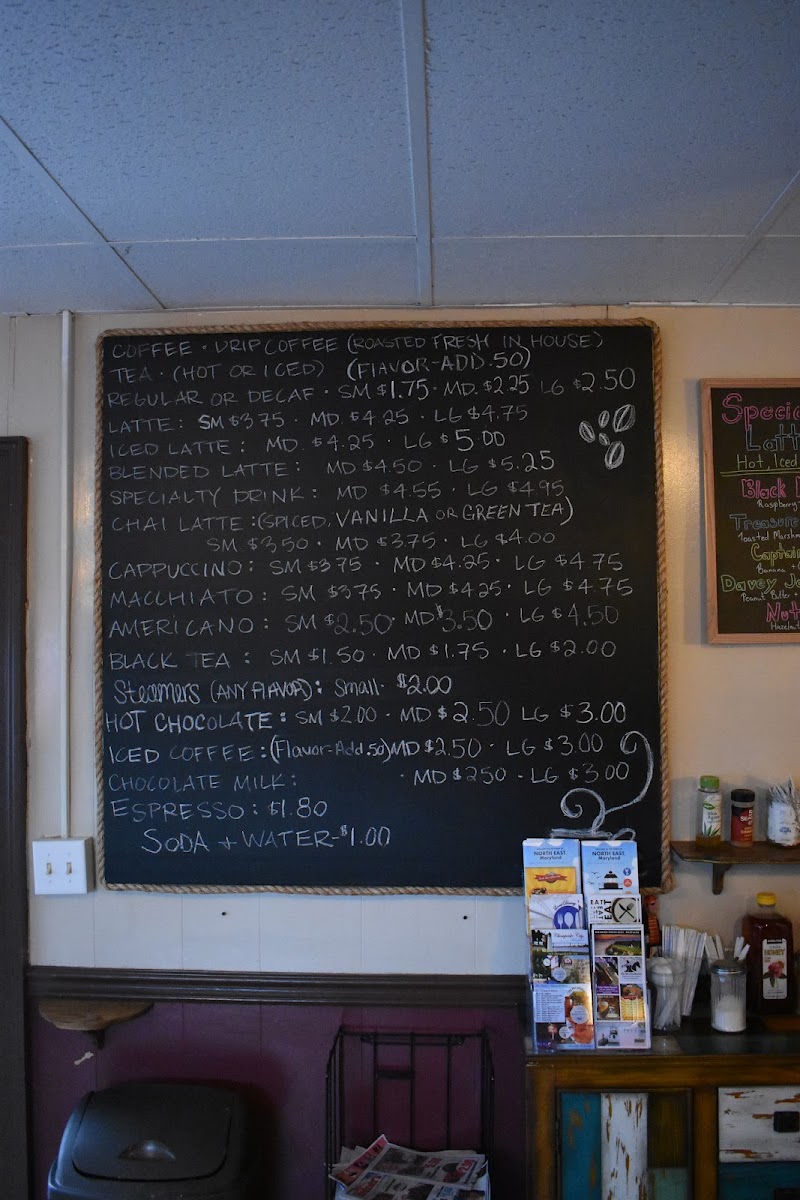 COFFEE · DRIP COFFEE (ROASTED FRESH IN HOUSE)
TEA · (HOT OR ICED) (FLAVOR-ADD .50)
REGULAR OR DECAF · SM $1.75 · MD. $2.25 LG $2.50
LATTE: SM $3.75 · MD $4.25 · LG $4.75
ICED LATTE: MD $4.25 · LG $5.00
BLENDED LATTE: MD $4.50 · LG $5.25
SPECIALTY DRINK: MD $4.55 · LG $4.95
CHAI LATTE: (SPICED, VANILLA OR GREEN TEA)
SM $3.50 · MD $3.75 · LG $4.00
CAPPUCCINO: SM $3.75 · MD $4.25 · LG $4.75
MACCHIATO: SM $3.75 · MD $4.25 · LG $4.75
AMERICANO: SM $2.50 · MD $3.50 · LG $4.50
BLACK TEA: SM $1.50 · MD $1.75 · LG $2.00
Steamers (ANY FLAVOR): Small · $2.00
HOT CHOCOLATE: SM $2.00 · MD $2.50 LG $3.00
ICED COFFEE: (Flavor-Add .50) MD $2.50 · LG $3.00
CHOCOLATE MILK: · MD $2.50 · LG $3.00
ESPRESSO: $1.80
SODA + WATER-$1.00
Specia
Latt
Hot, Iced
Black
Raspberry
Treasure
Toasted Marshm
Captai
Banana
Davey Jo
Peanut Butter
Nut
Hazelnut
NORTH EAST
Maryland
NORTH EAST
Maryland
EAT
Chesapeake City
HONEY